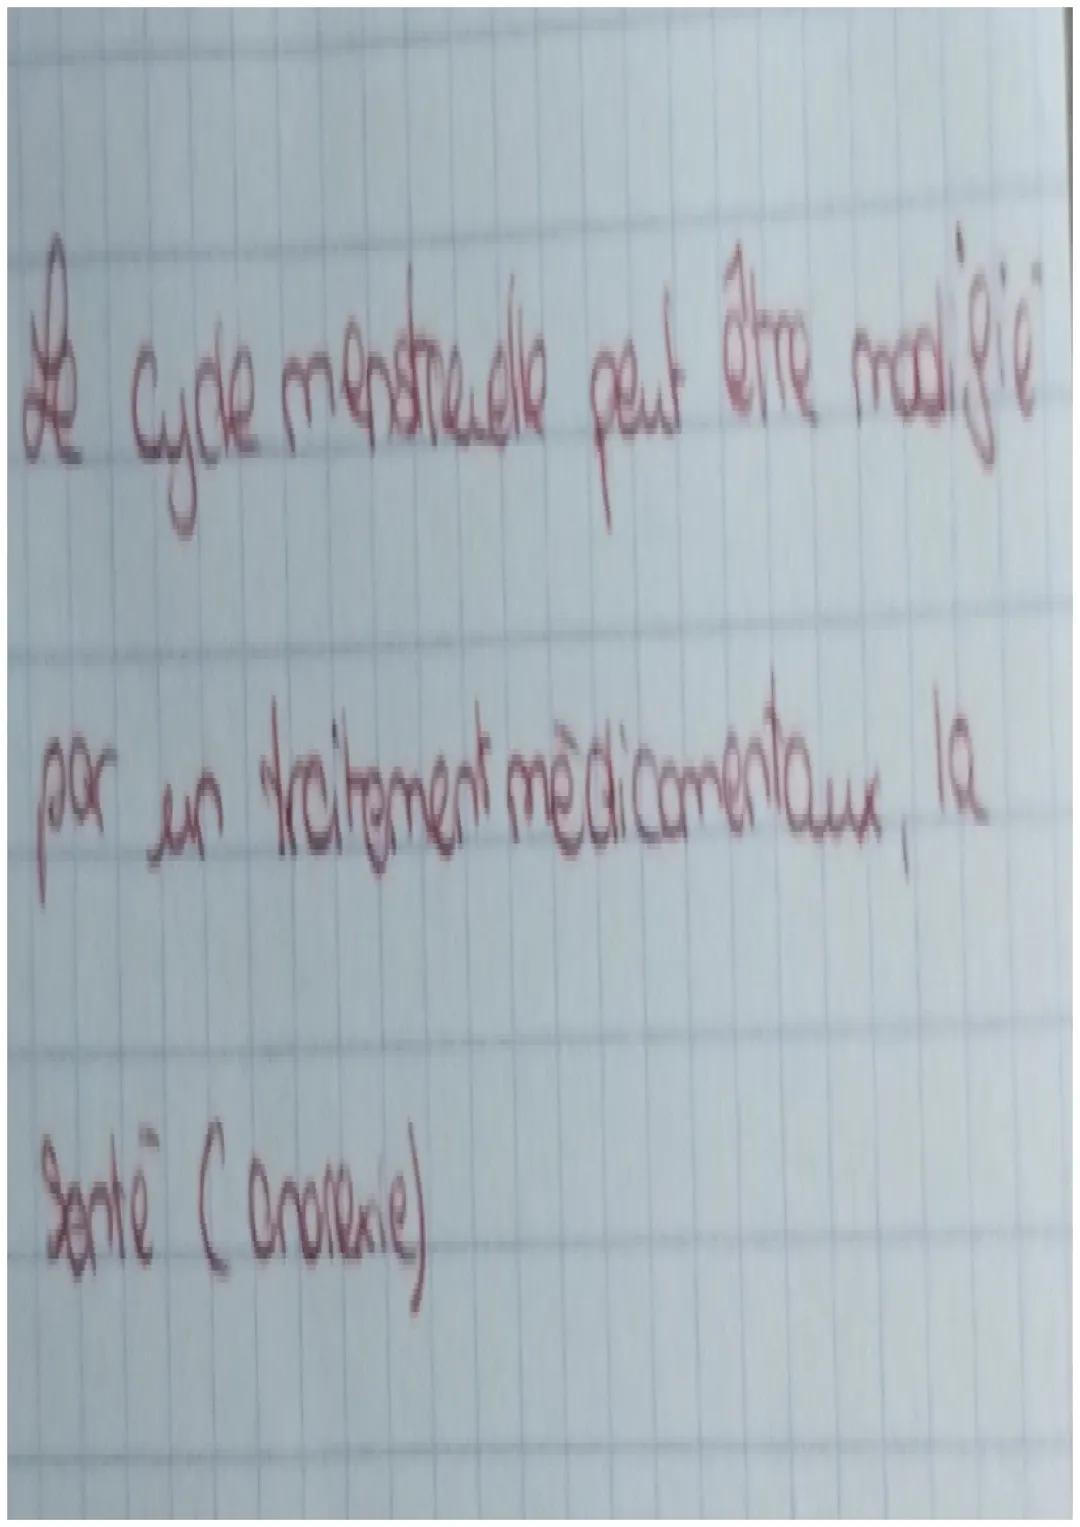 Le cycle menstruelle peut être modifié
par un traitement médicamentaux, la
santé (anorexie)